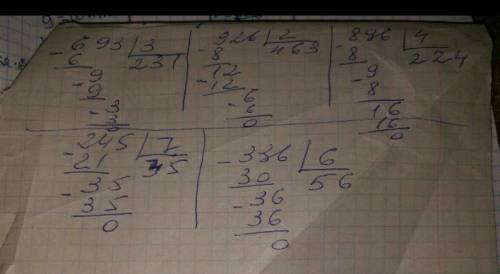 693 | 3
- 6 231
- 9
9
- 3
3
0
926 | 2
- 8 463
- 12
12
- 6
6
0
896 | 4
- 8 224
- 9
8
16
16
0
- 245 | 7
21 35
- 35
35
0
- 336 | 6
30 56
- 36
36
0